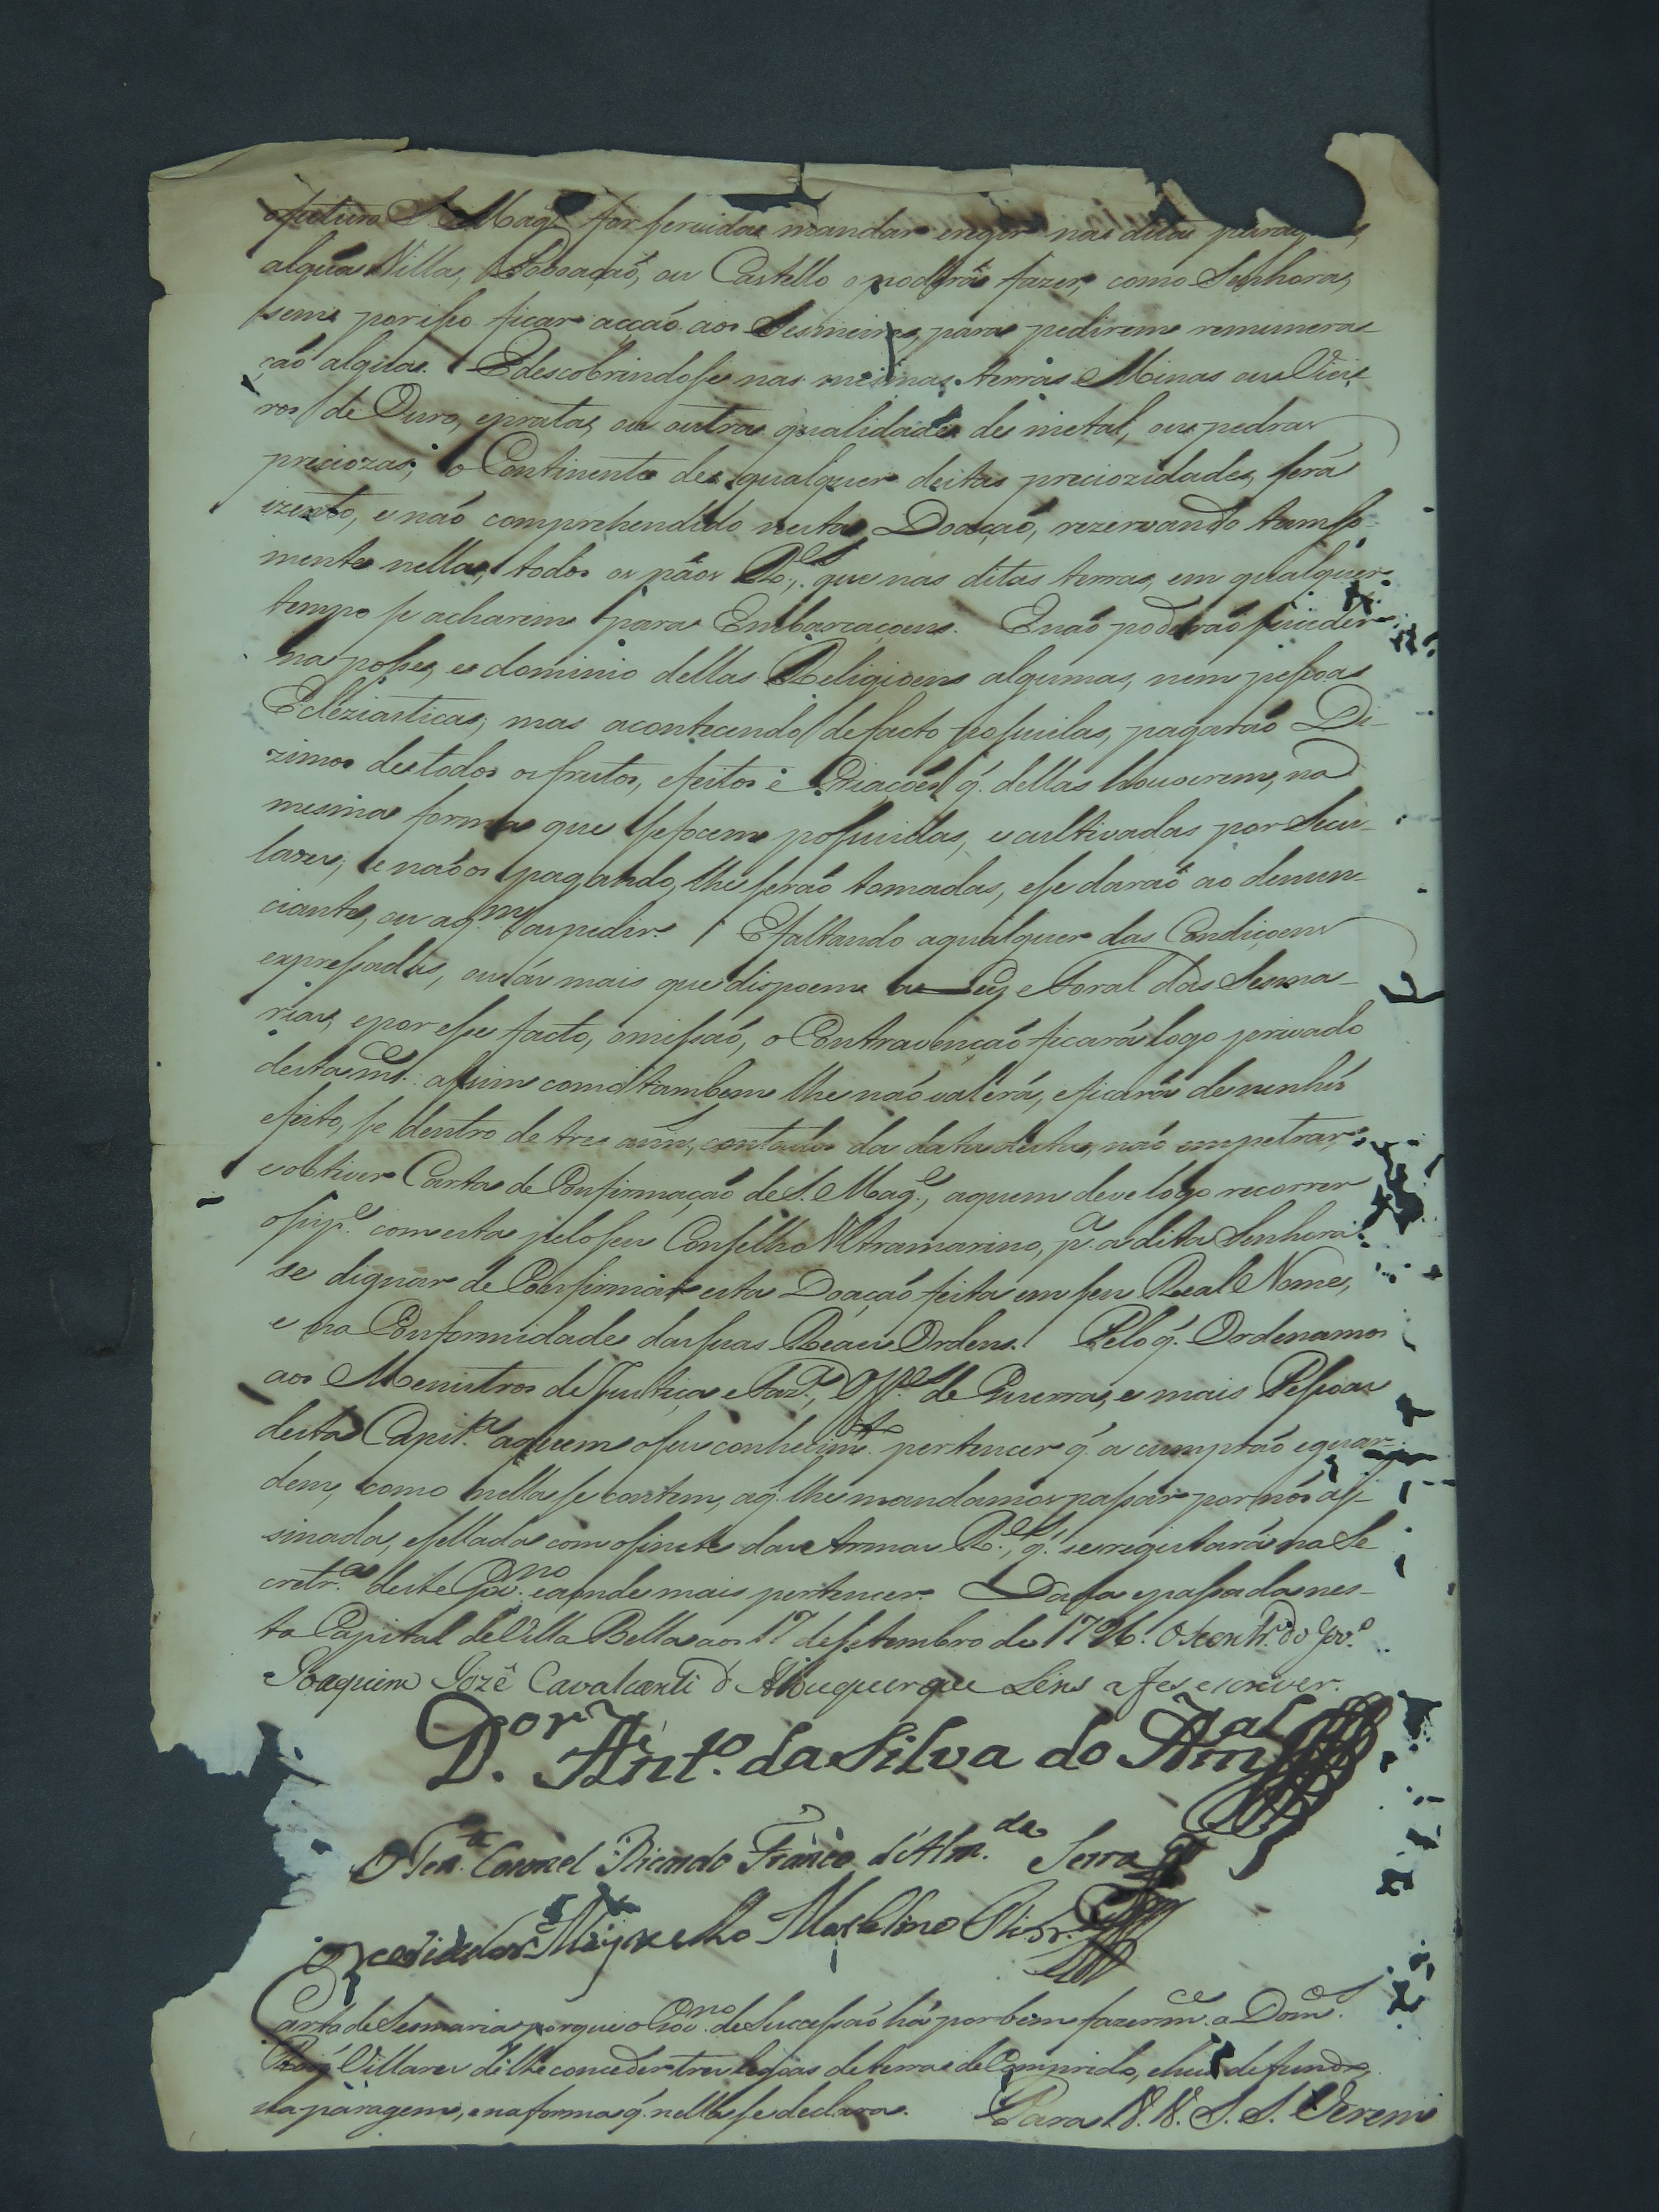 o futuro S. Mag.e for servida mandar erigir nas ditas
algũa Villa, Povoaçaõ, ou Castello o poderá fazer, como Senhora,
sem por isso ficar acçaõ aos Sesmeiros, para pedirem remunera-
çaõ algũa. E descobrindose nas mesmas terras Minas ou Viei-
ros de Ouro, e prata, ou outra qualidade de metal, ou pedras
preciozas; o Continente de qualquer destas preciozidades, será
izento, e naõ comprehendido nesta Doaçaõ, rezervando tam so-
mente nella, todos os páos R.es que nas ditas terras, em qualquer
tempo se acharem para Embarcaçoens. E naõ poderaõ suceder
na posse, e dominio dellas Religioens algumas, nem pessoas
Ecleziasticas; mas acontecendo de facto possuilas, pagaraõ Di-
zimos de todos os frutos, efeitos e Criações q̃. dellas houverem, na
mesma forma que se focem possuidas, e cultivadas por Secu-
lares; e naõ os pagando, lhe seraõ tomadas, e se daraõ ao denun-
ciante, ou a q.m as pedir. E faltando a qualquer das Condiçoens
expressadas, ou ás mais que dispoem a Ley e Foral das Sesma-
rias, e por esse facto, omissaõ, o Contravençaõ ficará logo privado
desta m.ce: assim como tambem lhe naõ valerá, e ficará de nenhũ
efeito, se dentro de tres ann.s, contados da data desta, naõ impetrar,
e obtiver Carta de Confirmaçaõ de S. Mag.e, a quem deve logo recorrer
o sup.e com esta pelo seu Conselho Ultramarino, p.a a dita Senhora
se dignar de Confirmar esta Doaçaõ feita em seu Real Nome,
e na Conformidade das suas Reaes Ordens. Pelo q̃. Ordenamos
aos Menistros de Justiça e Faz.a, Off.es de Guerra, e mais Pessoas
desta Capit.a a quem o seu conhecim.to pertencer q̃. a cumpraõ e guar-
dem, como nella se contem, a q̃. lhe mandamos passar por nós as-
sinada, e sellada com o sinete das Armas R.es, q̃. se registará na Se
cretr.a deste Gov.no e aonde mais pertencer. Dada e passada nes-
ta Capital de Villa Bella aos 17 de setembro de 1796. O Secretr.o do Gov.o
Joaquim Jozê Cavalcanti d'Albuquerque Lins a fes escrever.
D.or Ant.o da Silva do Am.al
O Ten.e Coronel Ricardo Franco d'Alm.da Serra
O vereador Marcelino Ribr.o
Carta de Sesmaria porque o Gov.no de Successaõ há por bem fazer m.ce a Dom.os
Villares de lhe conceder tres legoas de terras de Comprido, e hua de fundo,
na paragem, e na forma q̃. nella se declara. Para V. V. S. S. Verem